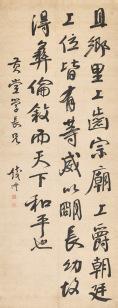 且鄉里上齒宗廟上爵朝廷
上位皆有等威以明長幼故
得彝倫敘而天下和平也
黄堂学長兄